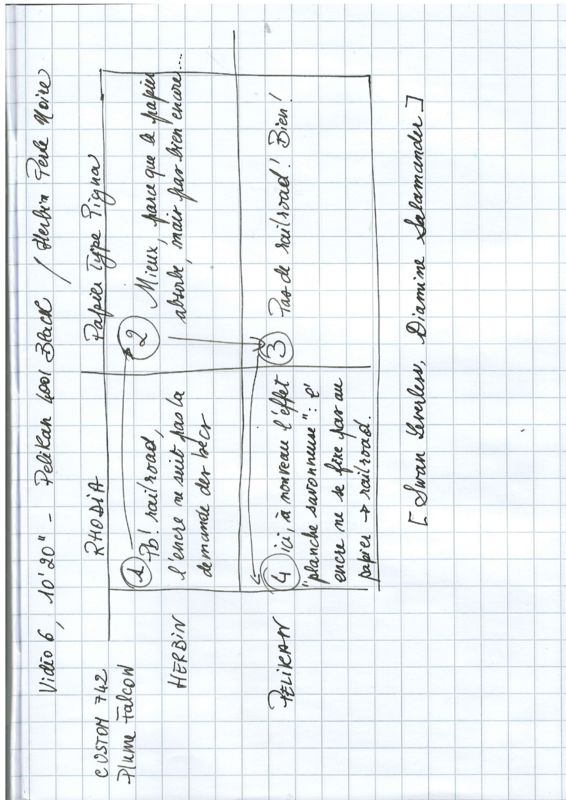 Vidéo 6, 10'20" - Pelikan 4001 Black / Herbin Perle Noire
CUSTOM 742
Plume Falcon
RHODIA
Papier Type Pigna
HERBIN
1 Pb! railroad,
l'encre ne suit pas la
demande des becs
2 Mieux, parce que le papier
absorbe, mais pas bien encore...
PELIKAN
4 ici, à nouveau l'effet
"planche savonneuse": l'
encre ne se fixe pas au
papier → railroad.
3 Pas de railroad! Bien!
[Swan Leverless, Diamine Salamander]